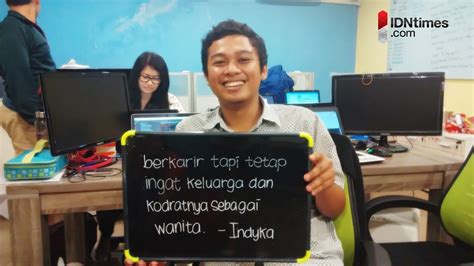 IDNtimes
.com
berkarir tapi tetap
ingat keluarga dan
kodratnya sebagai
wanita. - Indyka